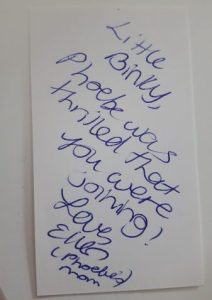 Little
Binky,
Phoebe was
thrilled that
you were
joining!
Love,
Ellen
(Phoebe's
mom)